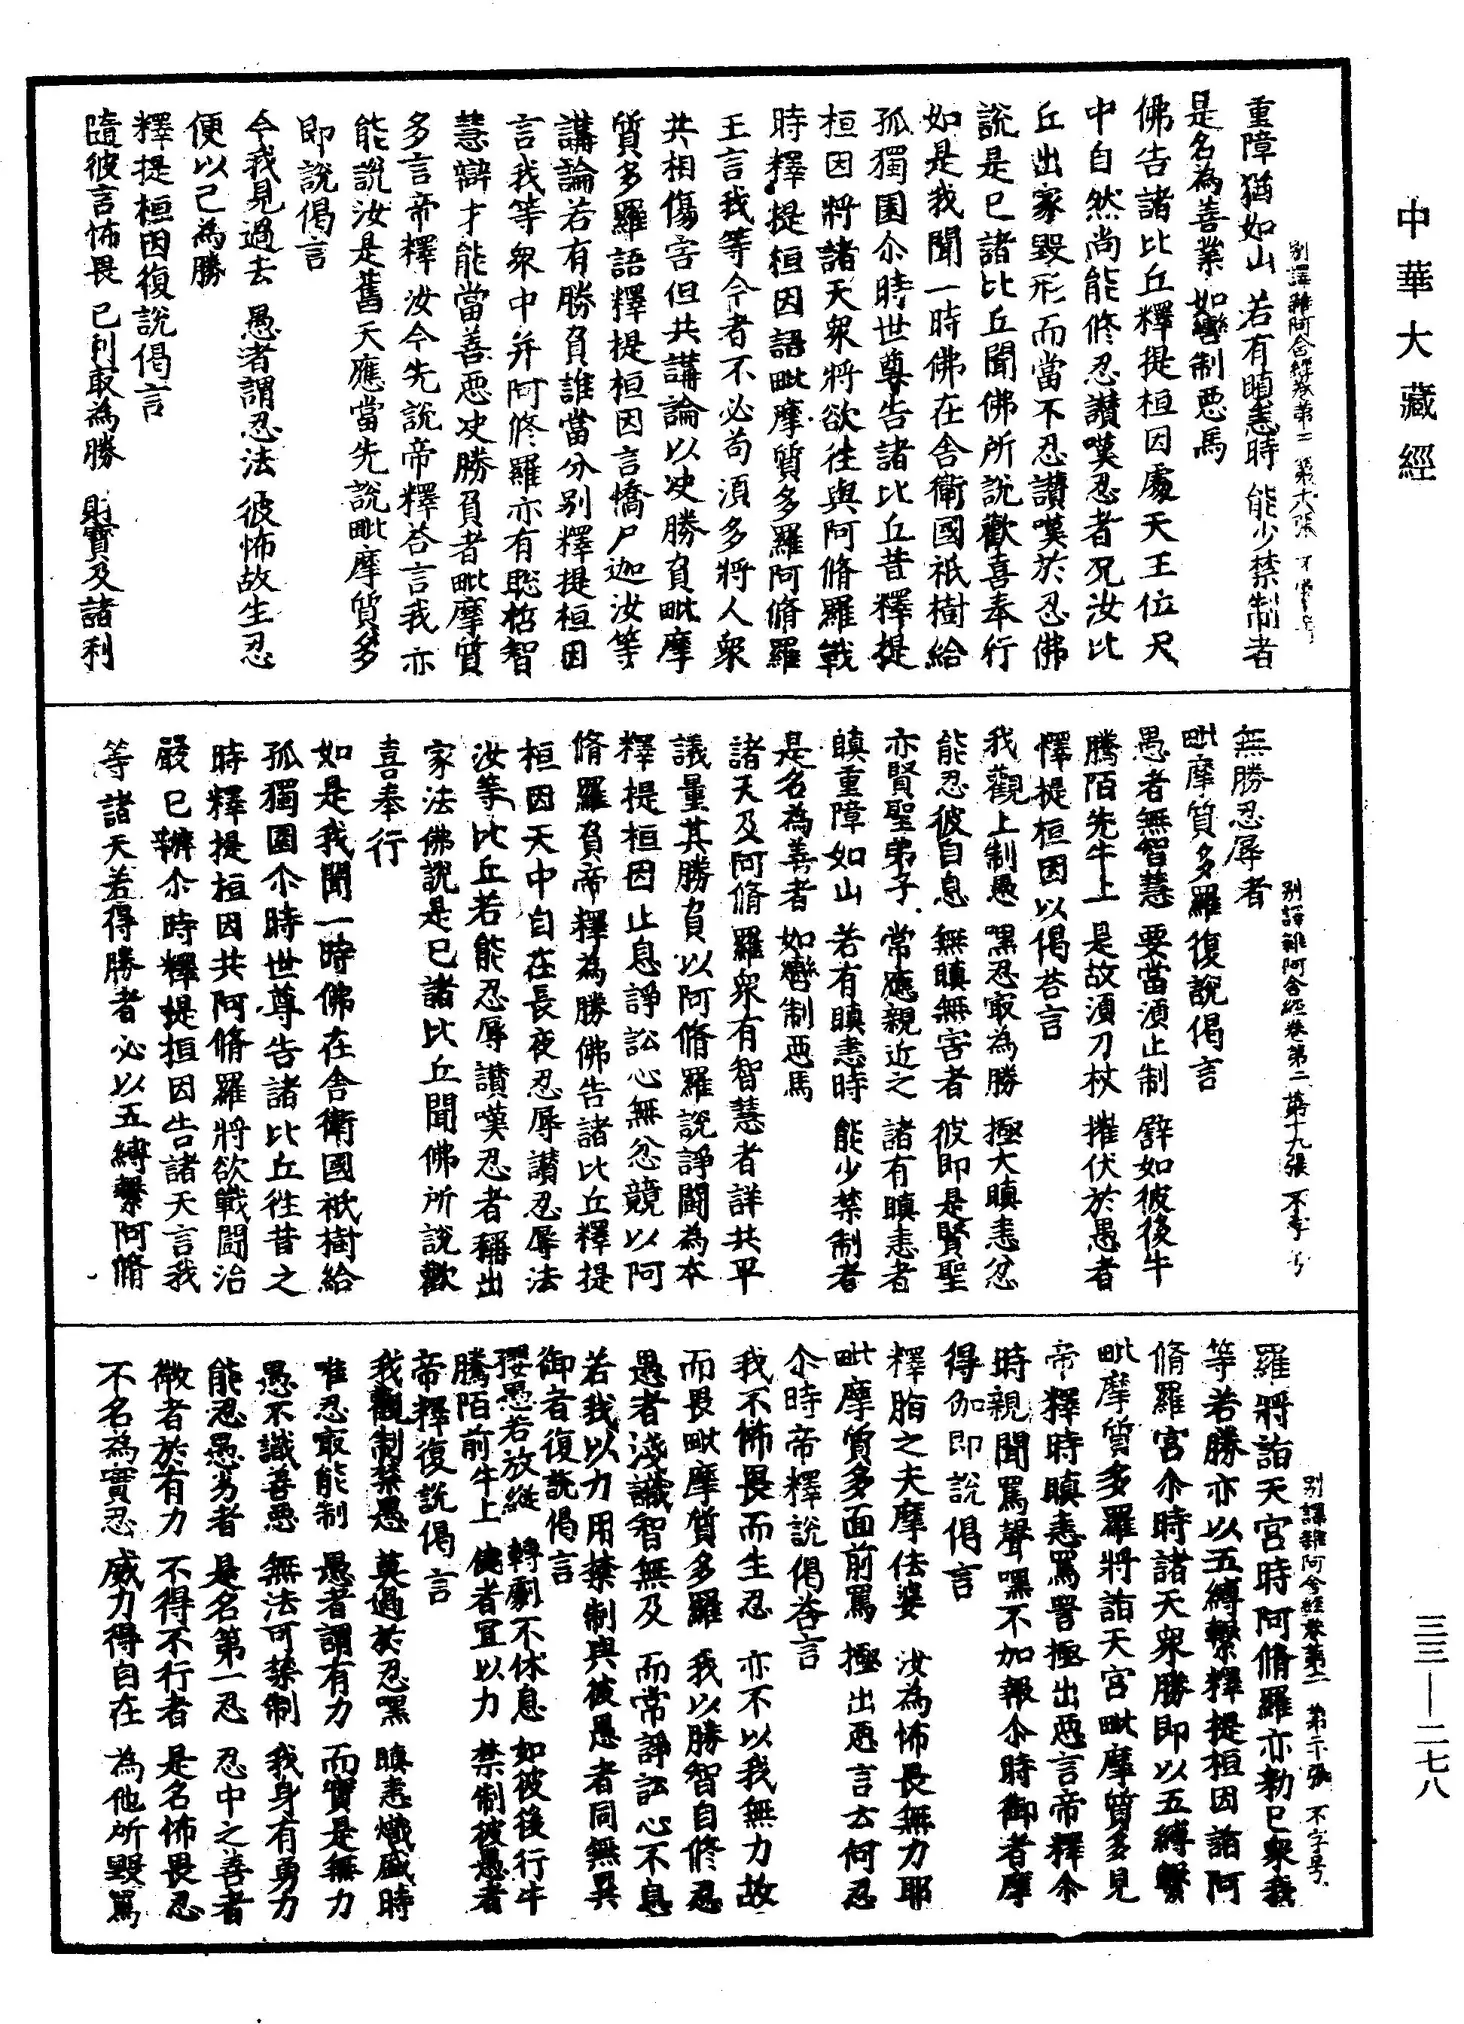 中華大藏經
三三—二七八
别譯雜阿含經卷第二 第十八張 不字号
重障猶如山 若有瞋恚時 能少禁制者
是名為善業 如轡制惡馬
佛告諸比丘釋提桓因處天王位天
中自然尚能修忍讃嘆忍者況汝比
丘出家毀形而當不忍讃嘆於忍佛
說是已諸比丘聞佛所說歡喜奉行
如是我聞一時佛在舍衛國祇樹給
孤獨園尒時世尊告諸比丘昔釋提
桓因將諸天衆將欲往與阿脩羅戰
時釋提桓因語毗摩質多羅阿脩羅
王言我等今者不必苟須多將人衆
共相傷害但共講論以决勝負毗摩
質多羅語釋提桓因言憍尸迦汝等
講論若有勝負誰當分别釋提桓因
言我等衆中并阿修羅亦有聡喆智
慧辯才能當善惡决勝負者毗摩質
多言帝釋汝今先說帝釋荅言我亦
能說汝是舊天應當先說毗摩質多
即說偈言
今我見過去 愚者謂忍法 彼怖故生忍
便以己為勝
釋提桓因復說偈言
隨彼言怖畏 己利㝡為勝 財寶及諸利
别譯雜阿含經卷第二 第十九張 不字号
無勝忍辱者
毗摩質多羅復說偈言
愚者無智慧 要當須止制 譬如彼後牛
騰陌先牛上 是故須刀杖 摧伏於愚者
釋提桓因以偈荅言
我觀上制愚 嘿忍㝡為勝 極大瞋恚忿
能忍彼自息 無瞋無害者 彼即是賢聖
亦賢聖弟子 常應親近之 諸有瞋恚者
瞋重障如山 若有瞋恚時 能少禁制者
是名為善者 如轡制惡馬
諸天及阿脩羅衆有智慧者詳共平
議量其勝負以阿脩羅說諍鬪為本
釋提桓因止息諍訟心無忿競以阿
脩羅負帝釋為勝佛告諸比丘釋提
桓因天中自在長夜忍辱讃忍辱法
汝等比丘若能忍辱讃嘆忍者稱出
家法佛說是已諸比丘聞佛所說歡
喜奉行
如是我聞一時佛在舍衛國祇樹給
孤獨園尒時世尊告諸比丘徃昔之
時釋提桓因共阿脩羅將欲戰鬪治
嚴已辦尒時釋提桓因告諸天言我
等諸天若得勝者必以五縛繫阿脩
别譯雜阿含經卷第二 第二十張 不字号
羅將詣天宮時阿脩羅亦勑已衆我
等若勝亦以五縛繫釋提桓因詣阿
脩羅宮尒時諸天衆勝即以五縛繫
毗摩質多羅將詣天宮毗摩質多見
帝釋時瞋恚罵詈極出惡言帝釋尒
時親聞罵聲嘿不加報尒時御者摩
得伽即說偈言
釋脂之夫摩佉婆 汝為怖畏無力耶
毗摩質多面前罵 極出惡言云何忍
尒時帝釋說偈荅言
我不怖畏而生忍 亦不以我無力故
而畏毗摩質多羅 我以勝智自修忍
愚者淺識智無及 而常諍訟心不息
若我以力用禁制與彼愚者同無異
御者復說偈言
嬰愚若放縱 轉劇不休息 如彼後行牛
騰陌前牛上 健者宜以力 禁制彼愚者
帝釋復說偈言
我觀制禁愚 莫過於忍嘿 瞋恚熾盛時
唯忍㝡能制 愚者謂有力 而實是無力
愚不識善惡 無法可禁制 我身有勇力
能忍愚劣者 是名第一忍 忍中之善者
微者於有力 不得不行者 是名怖畏忍
不名為實忍 威力得自在 為他所毀罵